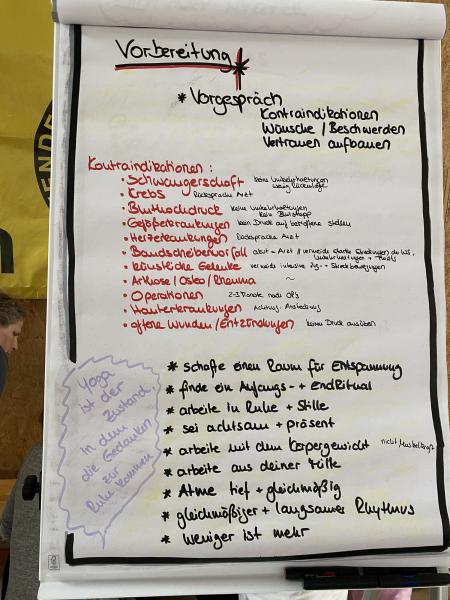 Vorbereitung
* Vorgespräch
Kontraindikationen
Wünsche / Beschwerden
Vertrauen aufbauen
Kontraindikationen:
• Schwangerschaft keine Umkehrhaltungen
wenig Rückenlage
• Krebs Rücksprache Arzt
• Bluthochdruck keine Umkehrhaltungen
kein Blutstopp
• Gefäßerkrankungen kein Druck auf betroffene stellen
• Herzerkrankungen Rücksprache Arzt
• Bandscheibenvorfall akut = Arzt // vermeide starke Streckungen der WS,
Umkehrhaltungen +
• künstliche Gelenke vermeide intensive Zug- + Streckbewegungen
• Athrose / Osteo / Rheuma ~
• Operationen 2-3 Monate nach OP's
• Hauterkrankungen Achtung: Ansteckung
• offene Wunden / Entzündungen keinen Druck ausüben
Yoga
ist der
Zustand,
In dem
die Gedanken
zur
Ruhe kommen
* schaffe einen Raum für Entspannung
* finde ein Anfangs- + EndRitual
* arbeite in Ruhe + Stille
* sei achtsam + präsent
* arbeite mit dem Körpergewicht nicht Muskelkraft
* arbeite aus deiner Fülle
* Atme tief + gleichmäßig
* gleichmäßiger + langsamer Rhythmus
* Weniger ist mehr
ENDE